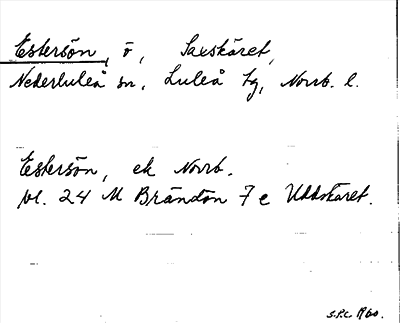 Estersön, ö, Saxskäret,
Nederluleå sn, Luleå tg, Norrb. l.
Estersön, ek Norrb.
bl. 24 M Brändön 7 e Uddskäret.
S.P.L. 1960.